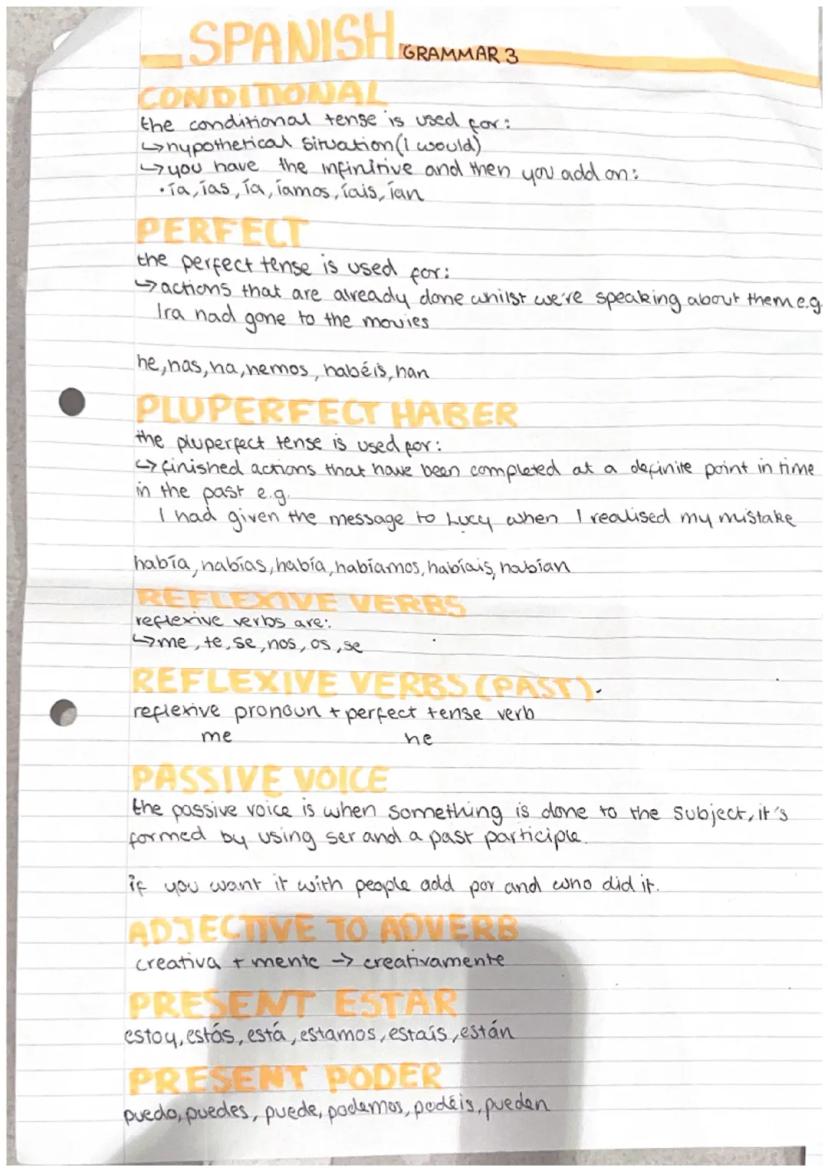 SPANISH GRAMMAR 3
CONDITIONAL
the conditional tense is used for:
↳hypothetical situation (I would)
↳you have the infinitive and then you add on:
•ía, ías, ía, íamos, íais, ían
PERFECT
the perfect tense is used for:
↳actions that are already done whilst we're speaking about them e.g.
Ira had gone to the movies
he, has, ha, hemos, habéis, han
PLUPERFECT HABER
the pluperfect tense is used for:
↳finished actions that have been completed at a definite point in time
in the past e.g.
I had given the message to Lucy when I realised my mistake
había, habías, había, habíamos, habíais, habían
REFLEXIVE VERBS
reflexive verbs are:
↳me, te, se, nos, os, se
REFLEXIVE VERBS (PAST).
reflexive pronoun + perfect tense verb
me he
PASSIVE VOICE
the passive voice is when something is done to the subject, it's
formed by using ser and a past participle.
if you want it with people add por and who did it.
ADJECTIVE TO ADVERB
creativa + mente → creativamente
PRESENT ESTAR
estoy, estás, está, estamos, estaís, están
PRESENT PODER
puedo, puedes, puede, podemos, podéis, pueden